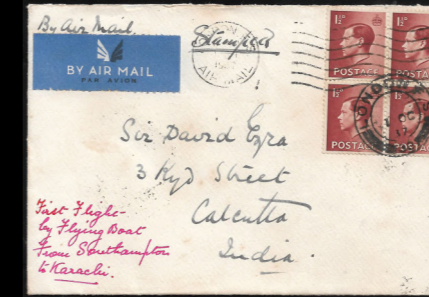 By Air Mail
BY AIR MAIL
PAR AVION
AIR MAIL
1½ᴰ
1½ᴰ
POSTAGE
POSTAGE
1½ᴰ
POSTAGE
POSTAGE
Sir David Ezra
3 Kyd Street
Calcutta
India.
First Flight-
by Flying Boat
from Southampton
to Karachi.